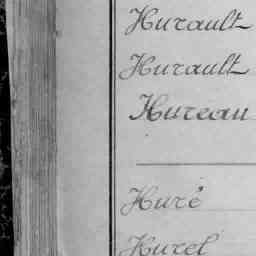 Hurault
Hurault
Hureau
Huré
Hurel